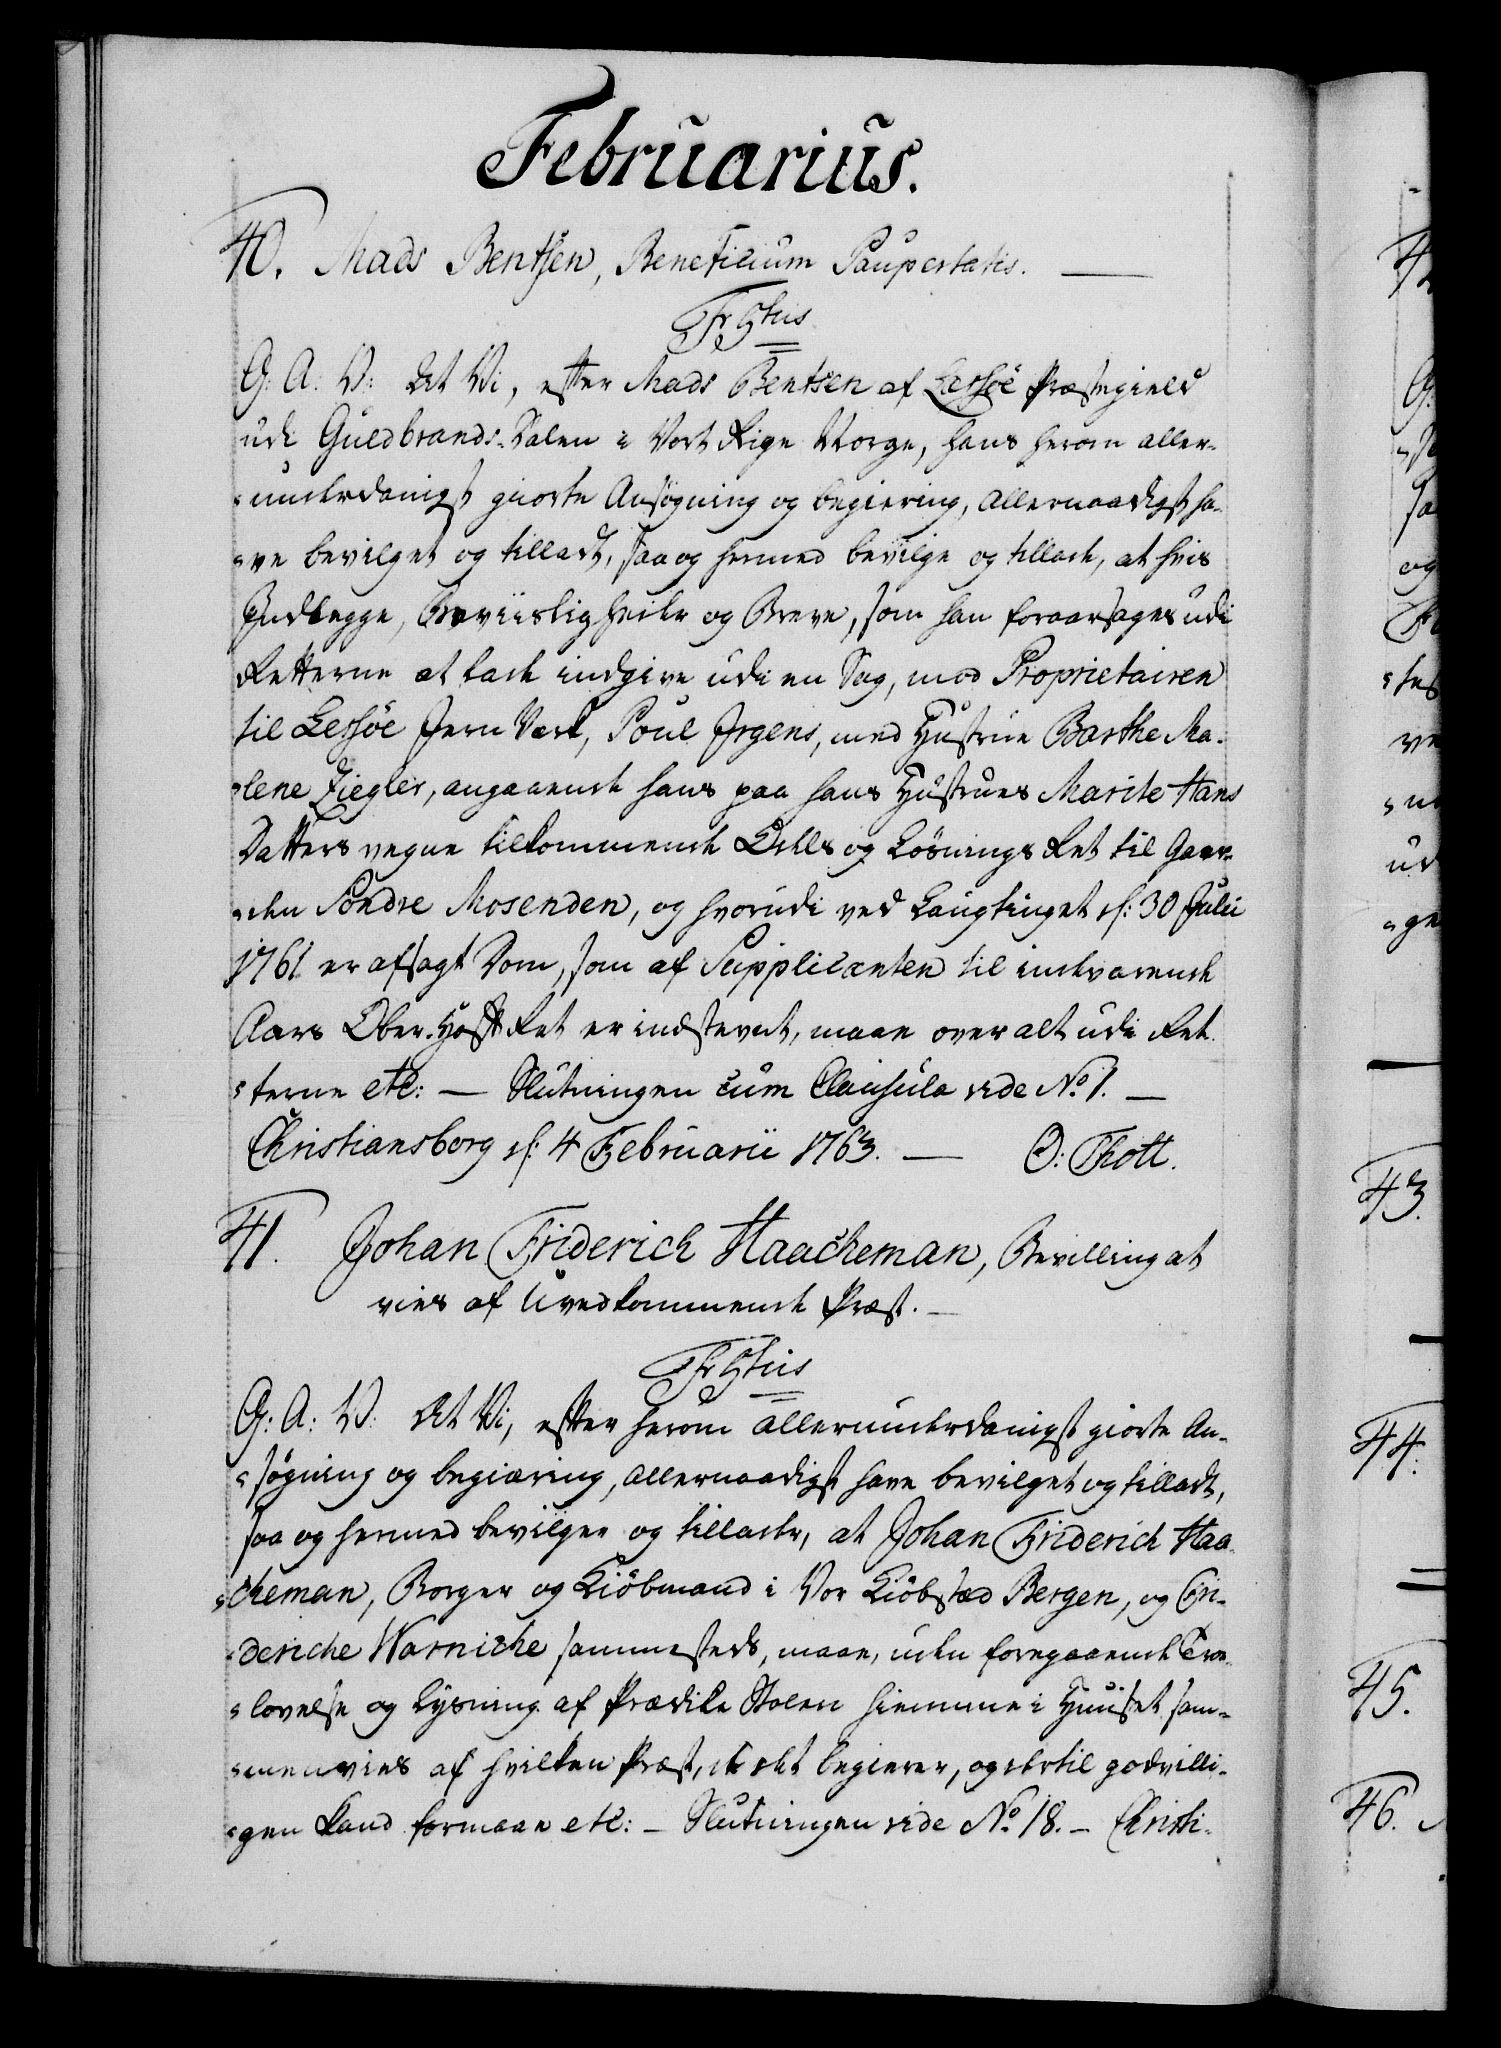 Februarius.
40. Mads Bentsen, Beneficium Paupertatis. —
Fr 5tus
G: A: V: At Vi, efter Mads Bentsen af Lessøe Præstegield
udi Guldbrands-Dalen i Vort Rige Norge, hans herom aller-
-underdanigst giorte Ansøgning og begiering, allernaadigst ha-
-ve bevilget og tilladt, saa og hermed bevilge og tillade, at hvis
Indlegge, Beviisligheder og Breve, som han foraarsages udi
Retterne at lade indgive udi en Sag, mod Proprietairen
til Lessøe Jern Verk, Poul Irgens, med Hustrue Barthe Ma-
-lene Ziegler, angaaende hans paa hans Hustrues Marite Hans
Datters vegne tilkommende Odels og Løsnings Ret til Gaar-
-den Søndre Mosenden, og hvorudi ved Laugtinget d: 30 Julii
1761 er afsagt Dom, som af Supplicanten til indeværende
Aars Ober-Hoff Ret er indstevnt, maae over alt udi Ret-
-terne etc: — Slutningen cum Clausula vide No. 1. —
Christiansborg d: 4 Februarii 1763. — O: Thott.
41. Johan Friderich Haacheman, Bevilling at
vies af Uvedkommende Præst. —
Fr 5tus
G: A: V: At Vi, efter herom allerunderdanigst giorte An-
-søgning og begiæring, allernaadigst have bevilget og tilladt,
saa og hermed bevilger og tillader, at Johan Friderich Haa-
-cheman, Borger og Kiøbmand i Vor Kiøbstæd Bergen, og Fri-
-deriche Warniche sammesteds, maae, uden foregaaende Troe-
-lovelse og Lysning af Prædike Stolen hiemme i Huuset sam-
-menvies af hvilken Præst, de det begierer, og dertil godvilli-
-gen kand formaae etc: — Slutningen vide No. 18. — Christi-